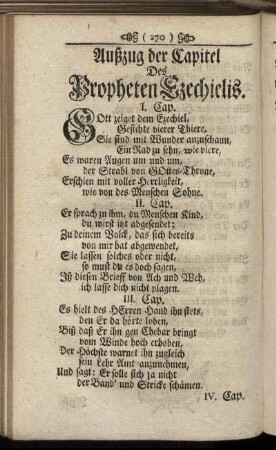 ( 270 )
Außzug der Capitel
Des
Propheten Ezechielis.
I. Cap.
GOtt zeiget dem Ezechiel,
Gesichte vierer Thiere,
Sie sind mit Wunder anzuschaun,
Ein Rad zu sehn, wie viere,
Es waren Augen um und um,
der Strahl von GOttes-Throne,
Erschien mit voller Herrligkeit,
wie von des Menschen Sohne.
II. Cap.
Er sprach zu ihm, du Menschen Kind,
du wirst itzt abgesendet;
Zu deinem Volck, das sich bereits
von mir hat abgewendet,
Sie lassen solches oder nicht,
so must du es doch sagen,
Iß diesen Brieff von Ach und Weh,
ich lasse dich nicht plagen.
III. Cap.
Es hielt des HErren Hand ihn stets,
den Er da hörte loben,
Biß daß Er ihn gen Chebar bringt
vom Winde hoch erhoben,
Der Höchste warnet ihn zugleich
sein Lehr Amt anzunehmen,
Und sagt: Er solle sich ja nicht
der Band' und Stricke schämen.
IV. Cap.